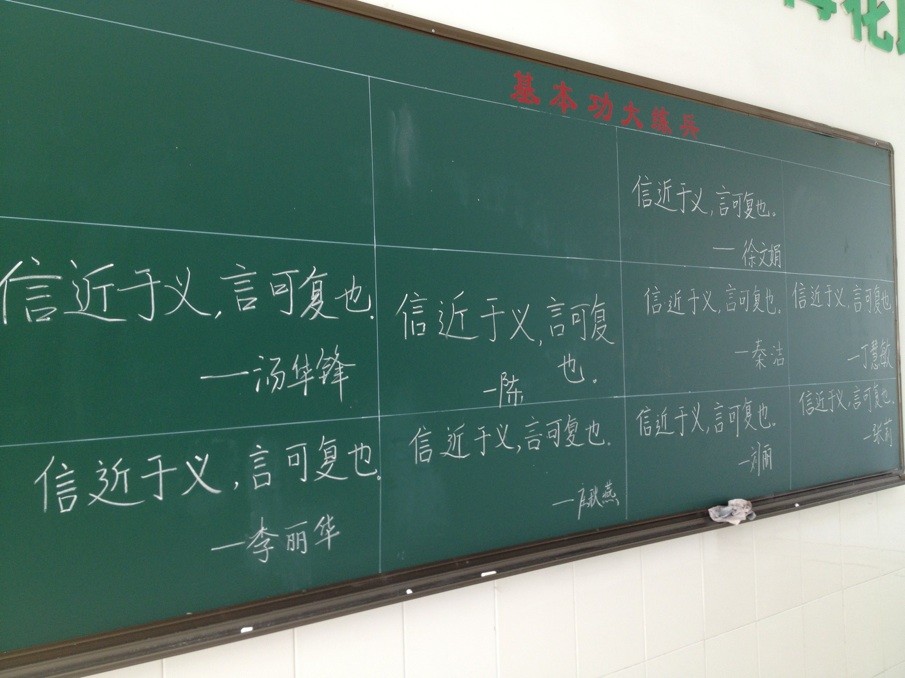 花
基本功大练兵
信近于义,言可复也。
— 徐文娟
信近于义,言可复也.
—汤华锋
信近于义,言可复
也.
—陈
信近于义,言可复也.
—秦洁
信近于义,言可复也
—丁慧敏
信近于义,言可复也.
—李丽华
信近于义,言可复也.
信近于义,言可复也.
—刘丽
信近于义,言可复也.
—张莉